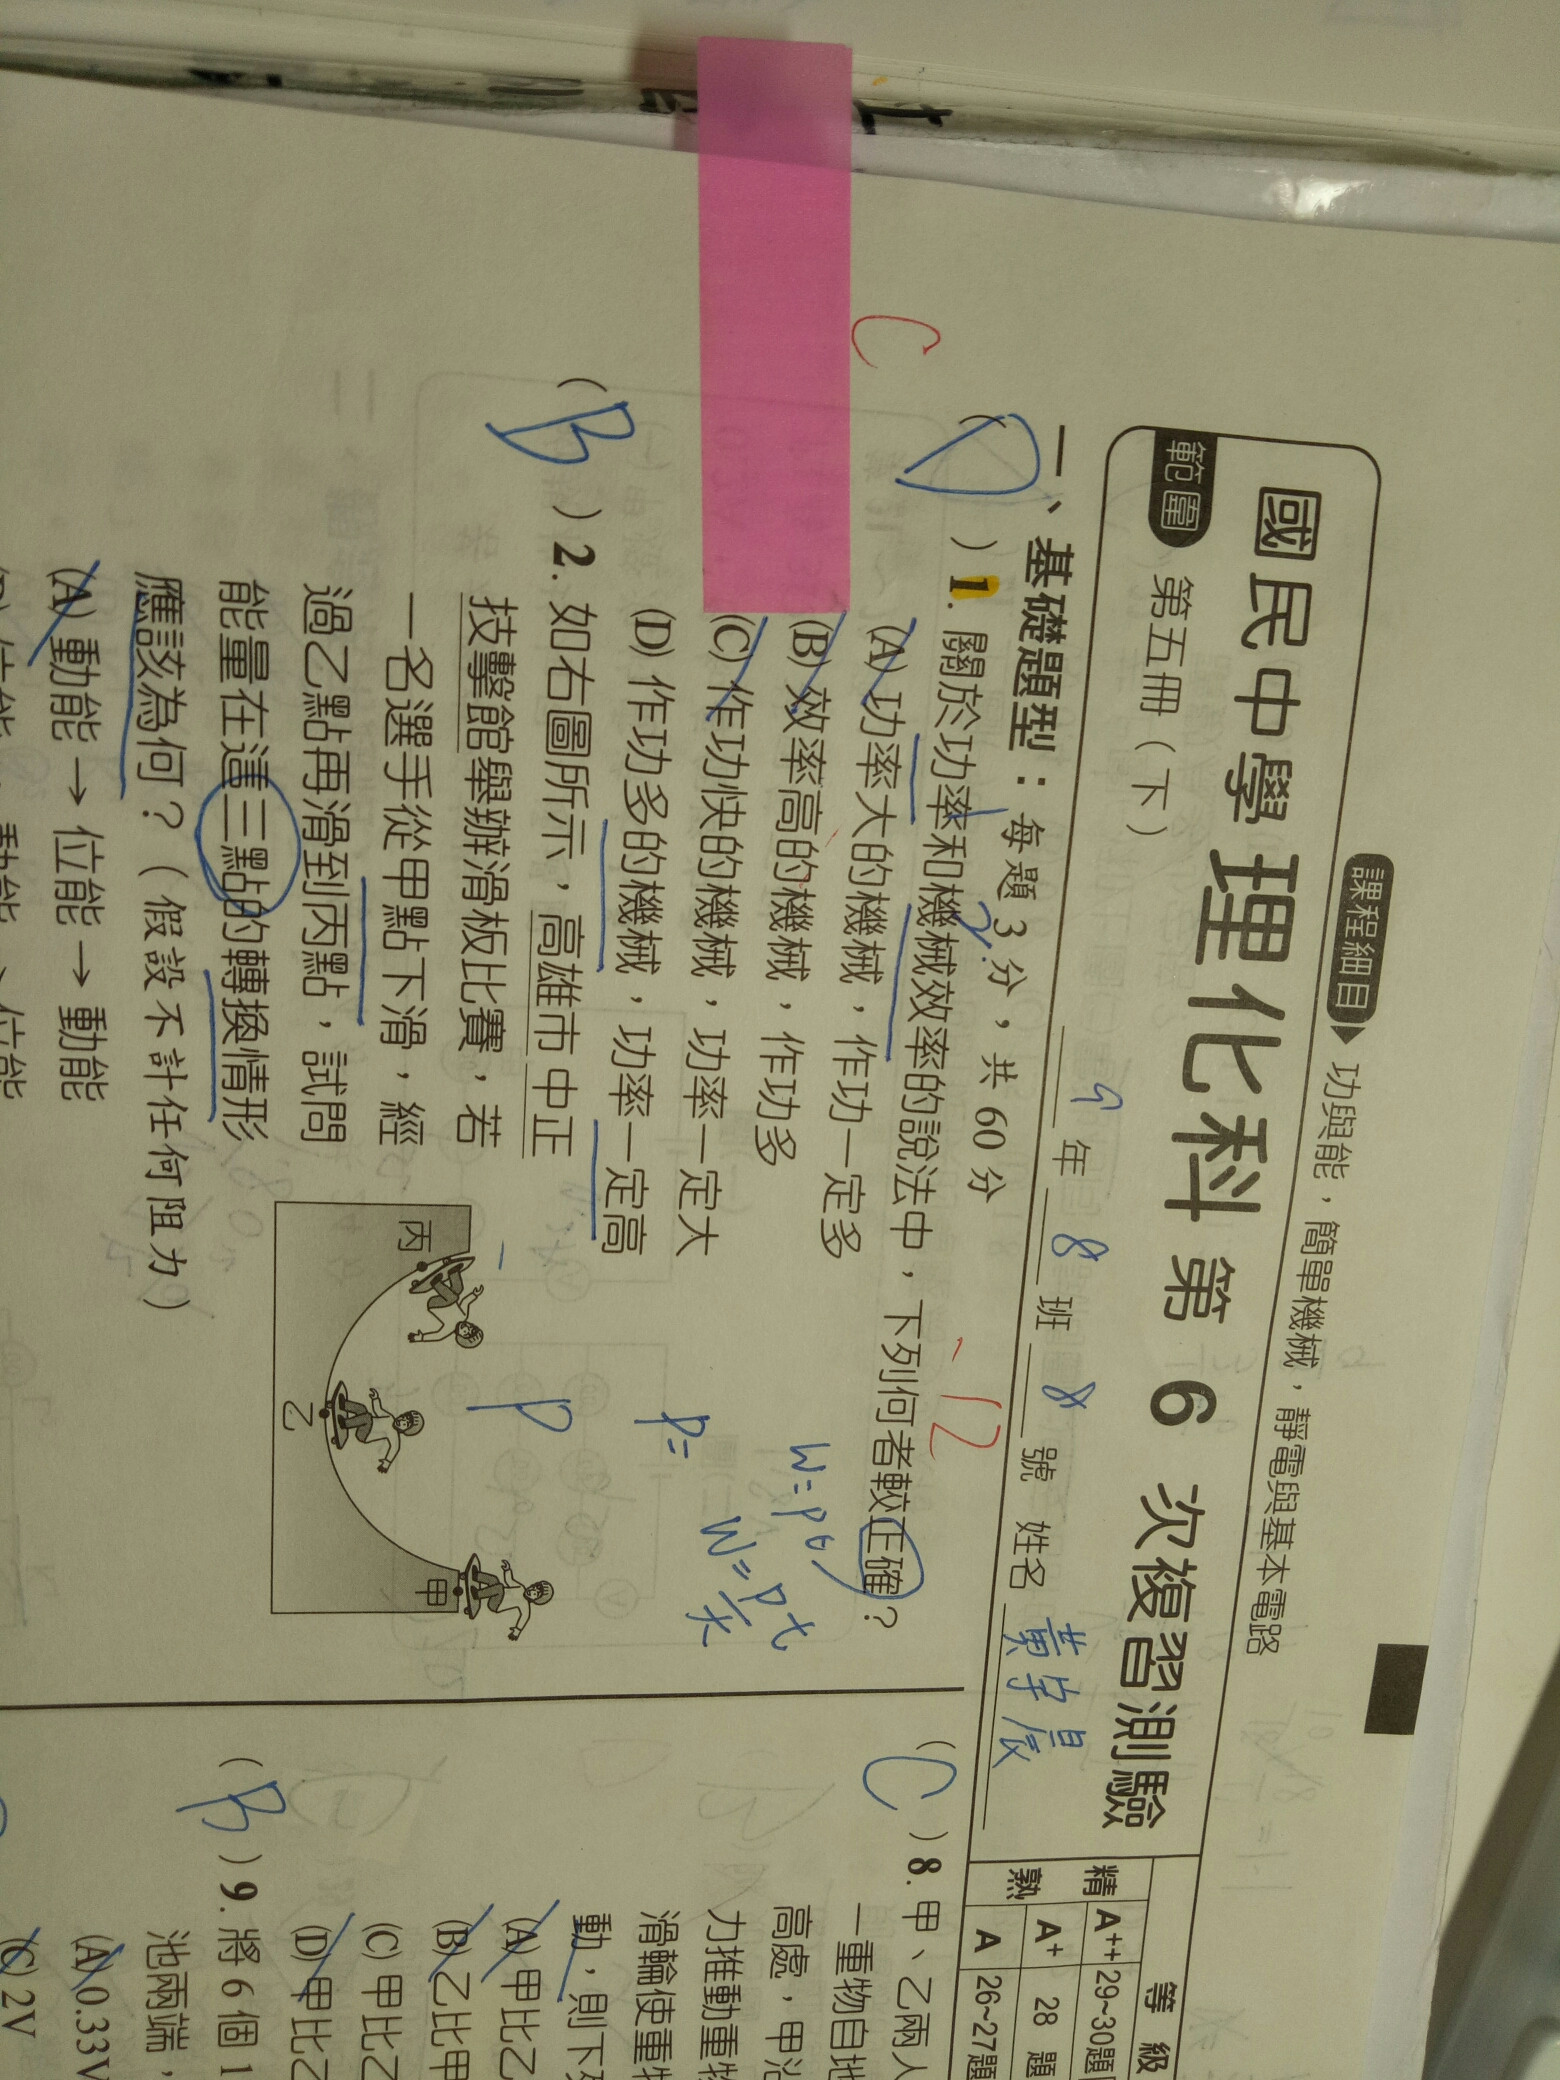 課程細目 功與能，簡單機械，靜電與基本電路
國民中學 理化科 第 6 次複習測驗
範圍 第五冊（下）
9 年 8 班 8 號 姓名 黃宇晨
等級
精熟
A++ 29~30題
A+ 28 題
A 26~27題
一、基礎題型：每題 3 分，共 60 分
-12
C
( D ) 1. 關於功率和機械效率的說法中，下列何者較正確？
(A) 功率大的機械，作功一定多
(B) 效率高的機械，作功多
(C) 作功快的機械，功率一定大
(D) 作功多的機械，功率一定高
W=pt
W=pt
P=
P
( B ) 2. 如右圖所示，高雄市中正
技擊館舉辦滑板比賽，若
一名選手從甲點下滑，經
過乙點再滑到丙點，試問
能量在這三點的轉換情形
應該為何？（假設不計任何阻力）
(A) 動能 → 位能 → 動能
丙
乙
甲
( C ) 8. 甲、乙兩人
一重物自地
高處，甲沿
力推動重物
滑輪使重物
動，則下列
(A) 甲比乙
(B) 乙比甲
(C) 甲比乙
(D) 甲比乙
( B ) 9. 將 6 個 1
池兩端，
(A) 0.33V
(C) 2V